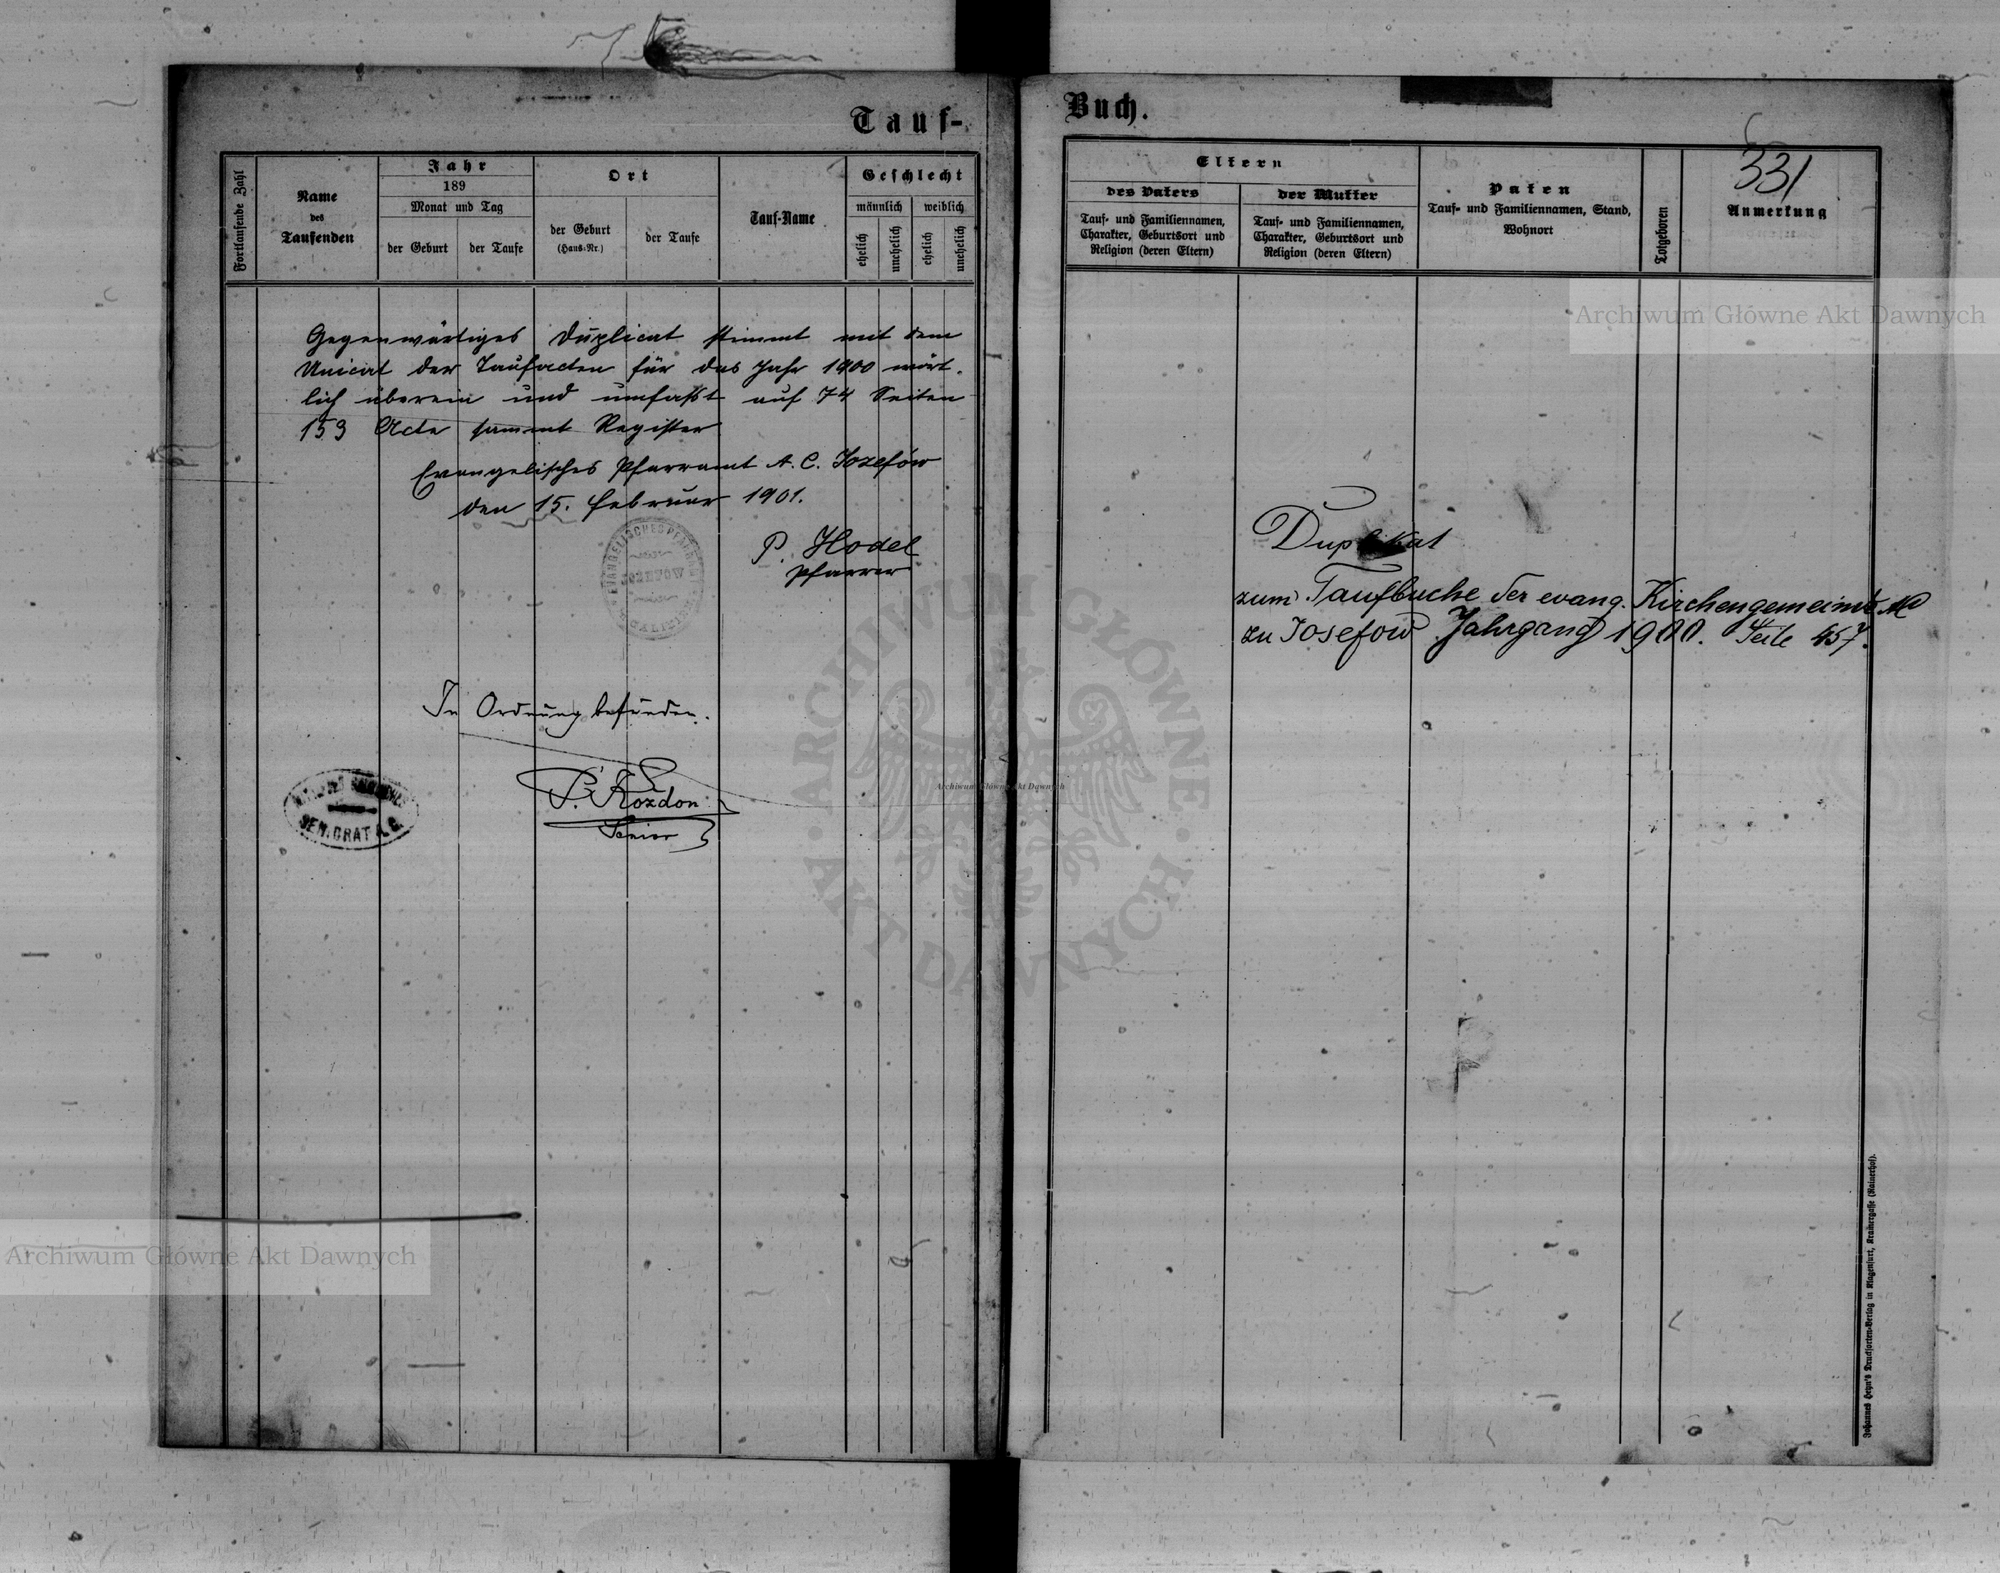 Tauf-
Fortlaufende Zahl
Name
des
Taufenden
Jahr
189
Monat und Tag
der Geburt
der Taufe
Ort
der Geburt
(Haus-Nr.)
der Taufe
Tauf-Name
Geschlecht
männlich
weiblich
ehelich
unehelich
ehelich
unehelich
Gegenwärtiges Duplicat stimmt mit dem
Unicat der Taufacten für das Jahr 1900 wört-
lich überein und umfaßt auf 74 Seiten
153 Acte sammt Register
Evangelisches Pfarramt A. C. Józefów
den 15. Februar 1901.
P. Hodel
Pfarrer
EVANGELISCHES PFARRAMT
JOZEFÓW
GALIZIEN
In Ordnung befunden.
P. Kozdon
Senior
SENIORAT A.C.
Buch.
331
Eltern
des Vaters
Tauf- und Familiennamen,
Charakter, Geburtsort und
Religion (deren Eltern)
der Mutter
Tauf- und Familiennamen,
Charakter, Geburtsort und
Religion (deren Eltern)
Paten
Tauf- und Familiennamen, Stand,
Wohnort
Totgeboren
Anmerkung
Duplikat
zum Taufbuche der evang. Kirchengemeinde AC
zu Josefow Jahrgang 1900. Seite 457.
Johannes Heyn's Drucksorten-Verlag in Klagenfurt, Kramergasse (Rainerhof).
Archiwum Główne Akt Dawnych
Archiwum Główne Akt Dawnych
ARCHIWUM GŁÓWNE
AKT DAWNYCH
Archiwum Główne Akt Dawnych